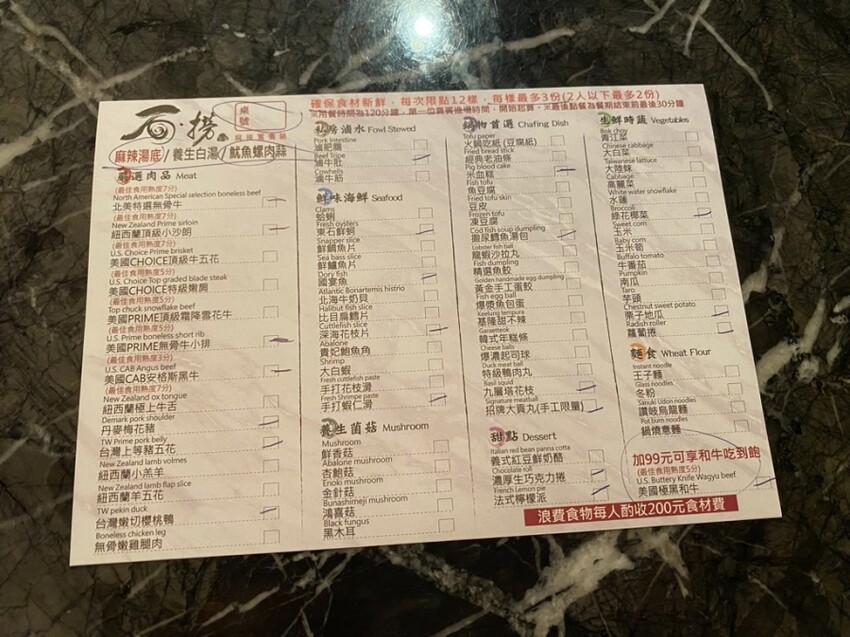 石·撈
桌號
麻辣鴛鴦鍋
確保食材新鮮，每次限點12樣，每樣最多3份(2人以下最多2份)
※用餐時間為120分鐘，第一位貴賓進場時間，開始起算，※最後點餐為餐期結束前最後30分鐘
麻辣湯底/養生白湯/魷魚螺肉蒜
嚴選肉品 Meat
(最佳食用熟度7分)
North American Special selection boneless beef
北美特選無骨牛
(最佳食用熟度7分)
New Zealand Prime sirloin
紐西蘭頂級小沙朗
(最佳食用熟度7分)
U.S. Choice Prime brisket
美國CHOICE頂級牛五花
(最佳食用熟度5分)
U.S. Choice Top graded blade steak
美國CHOICE特級嫩肩
(最佳食用熟度5分)
Top chuck snowflake beef
美國PRIME頂級霜降雪花牛
(最佳食用熟度5分)
U.S. Prime boneless short rib
美國PRIME無骨牛小排
(最佳食用熟度3分)
U.S. CAB Angus beef
美國CAB安格斯黑牛
(最佳食用熟度7分)
New Zealand ox tongue
紐西蘭極上牛舌
Demark pork shoulder
丹麥梅花豬
TW Prime pork belly
台灣上等豬五花
New Zealand lamb volmes
紐西蘭小羔羊
New Zealand lamb flap slice
紐西蘭羊五花
TW pekin duck
台灣嫩切櫻桃鴨
Boneless chicken leg
無骨嫩雞腿肉
私房滷水 Fowl Stewed
Pork Intestine
滷肥腸
Beef Tripe
滷牛肚
Cowheels
滷牛筋
鮮味海鮮 Seafood
Clams
蛤蜊
Fresh oysters
東石鮮蚵
Snapper slice
鮮鯛魚片
Sea bass slice
鮮鱸魚片
Dory fish
國宴魚
Atlantic Bonartemis histrio
北海牛奶貝
Halibut fish slice
比目扁鱈片
Cuttlefish slice
深海花枝片
Abalone
貴妃鮑魚角
Shrimp
大白蝦
Fresh cuttlefish paste
手打花枝滑
Fresh Shrimpe paste
手打蝦仁滑
養生菌菇 Mushroom
Mushroom
鮮香菇
Abalone mushroom
杏鮑菇
Enoki mushroom
金針菇
Bunashimeji mushroom
鴻喜菇
Black fungus
黑木耳
鍋物首選 Chafing Dish
Tofu paper
火鍋吃紙 (豆腐紙)
Fried bread stick
經典老油條
Pig blood cake
米血糕
Fish tofu
魚豆腐
Fried tofu skin
豆皮
Frozen tofu
凍豆腐
Cod fish soup dumpling
撒尿鱈魚湯包
Lobster fish ball
龍蝦沙拉丸
Fish dumpling
精選魚餃
Golden handmade egg dumpling
黃金手工蛋餃
Fish egg ball
爆漿魚包蛋
Keelung tempura
基隆甜不辣
Garaetteok
韓式年糕條
Cheese balls
爆濃起司球
Duck meat ball
特級鴨肉丸
Basil squid
九層塔花枝
Signature meatball
招牌大貢丸(手工限量)
甜點 Dessert
Italian red bean panna cotta
義式紅豆鮮奶酪
Chocolate roll
濃厚生巧克力捲
French Lemon pie
法式檸檬派
生鮮時蔬 Vegetables
Bok choy
青江菜
Chinese cabbage
大白菜
Taiwanese lattuce
大陸妹
Cabbage
高麗菜
White water snowflake
水蓮
Broccoli
綠花椰菜
Sweet corn
玉米
Baby corn
玉米筍
Buffalo tomato
牛番茄
Pumpkin
南瓜
Taro
芋頭
Chestnut sweet potato
栗子地瓜
Radish roller
蘿蔔捲
麵食 Wheat Flour
Instant noodle
王子麵
Glass noodles
冬粉
Sanuki Udon noodles
讚岐烏龍麵
Pot burn noodles
鍋燒意麵
加99元可享和牛吃到飽
(最佳食用熟度5分)
U.S. Buttery Knife Wagyu beef
美國極黑和牛
浪費食物每人酌收200元食材費